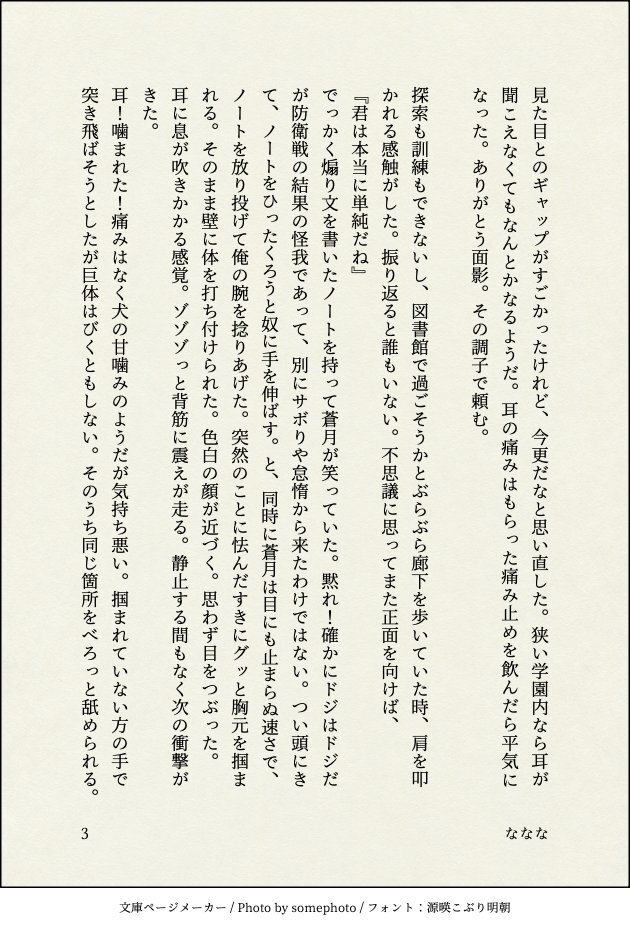 見た目とのギャップがすごかったけれど、今更だなと思い直した。狭い学園内なら耳が
聞こえなくてもなんとかなるようだ。耳の痛みはもらった痛み止めを飲んだら平気に
なった。ありがとう面影。その調子で頼む。
探索も訓練もできないし、図書館で過ごそうかとぶらぶら廊下を歩いていた時、肩を叩
かれる感触がした。振り返ると誰もいない。不思議に思ってまた正面を向けば、
『君は本当に単純だね』
でっかく煽り文を書いたノートを持って蒼月が笑っていた。黙れ！確かにドジはドジだ
が防衛戦の結果の怪我であって、別にサボりや怠惰から来たわけではない。つい頭にき
て、ノートをひったくろうと奴に手を伸ばす。と、同時に蒼月は目にも止まらぬ速さで、
ノートを放り投げて俺の腕を捻りあげた。突然のことに怯んだすきにグッと胸元を掴ま
れる。そのまま壁に体を打ち付けられた。色白の顔が近づく。思わず目をつぶった。
耳に息が吹きかかる感覚。ゾゾゾっと背筋に震えが走る。静止する間もなく次の衝撃が
きた。
耳！噛まれた！痛みはなく犬の甘噛みのようだが気持ち悪い。掴まれていない方の手で
突き飛ばそうとしたが巨体はびくともしない。そのうち同じ箇所をべろっと舐められる。
ななな
3
文庫ページメーカー / Photo by somephoto / フォント：源暎こぶり明朝